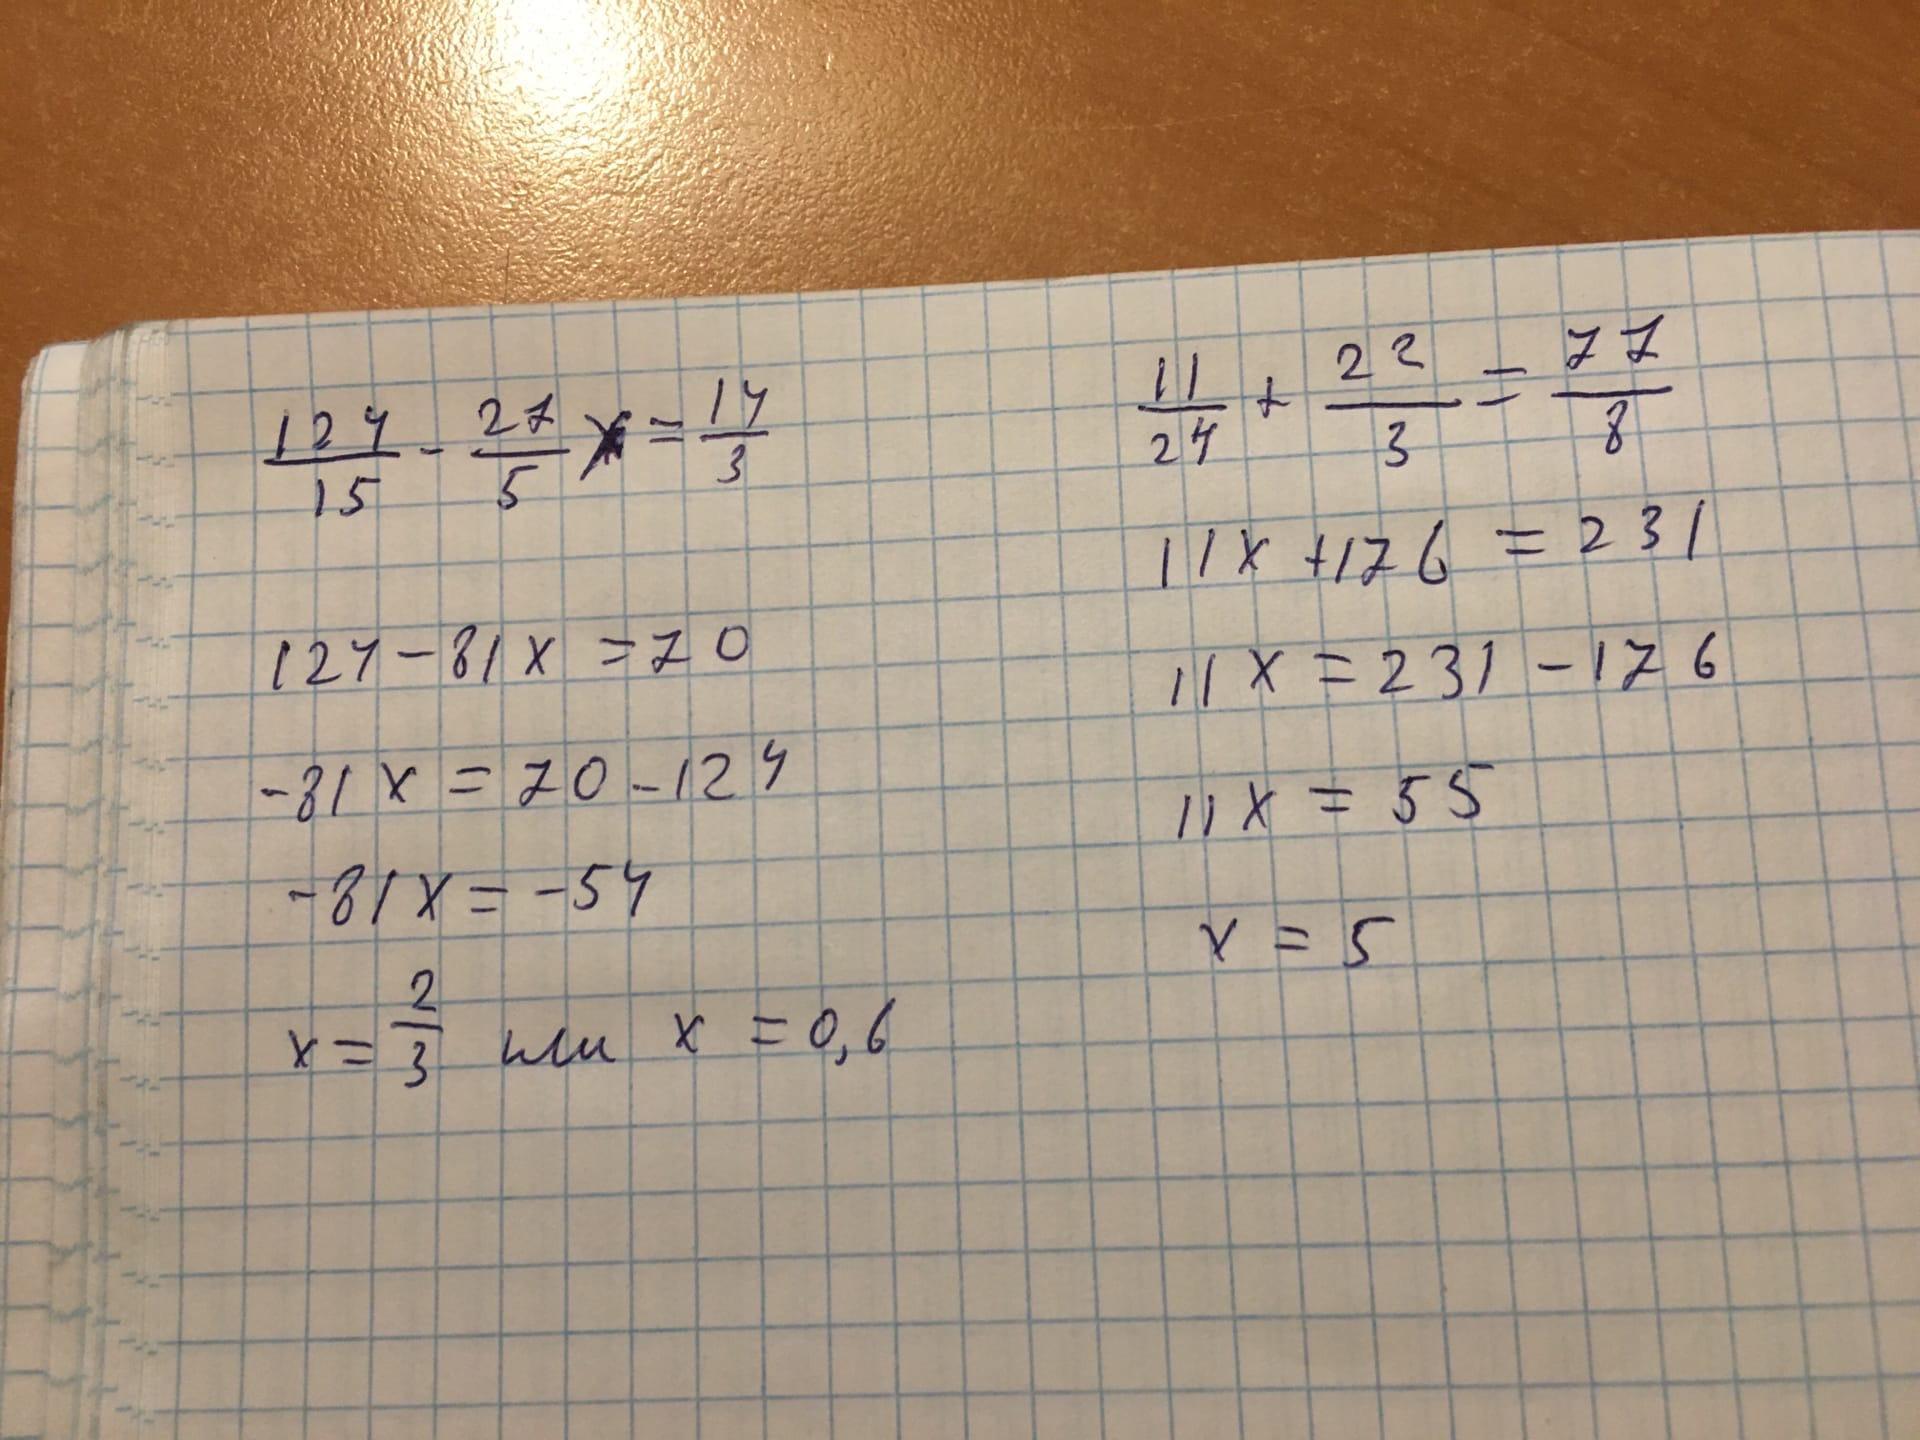 124/15 - 27/5 x = 14/3
124 - 81x = 70
-81x = 70 - 124
-81x = -54
x = 2/3 или x = 0,6
11/24 + 22/3 = 77/8
11x + 176 = 231
11x = 231 - 176
11x = 55
x = 5